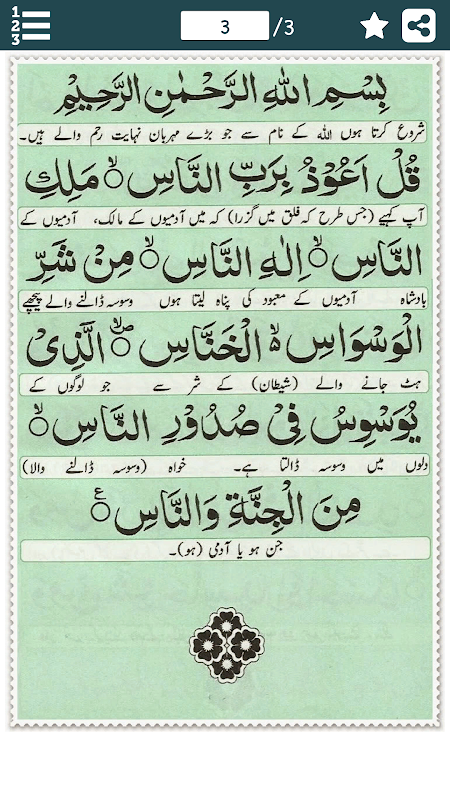 1
2
3
3 /3
بِسْمِ اللهِ الرَّحْمٰنِ الرَّحِيْمِ
شروع کرتا ہوں اللہ کے نام سے جو بڑے مہربان نہایت رحم والے ہیں۔
قُلْ اَعُوْذُ بِرَبِّ النَّاسِ ۙ مَلِكِ
آپ کہیے (جس طرح کہ فلق میں گزرا) کہ میں آدمیوں کے مالک، آدمیوں کے
النَّاسِ ۙ اِلٰهِ النَّاسِ ۙ مِنْ شَرِّ
بادشاہ آدمیوں کے معبود کی پناہ لیتا ہوں وسوسہ ڈالنے والے پیچھے
الْوَسْوَاسِ ۙ الْخَنَّاسِ ۙ الَّذِیْ
ہٹ جانے والے (شیطان) کے شر سے جو لوگوں کے
يُوَسْوِسُ فِیْ صُدُوْرِ النَّاسِ ۙ
دلوں میں وسوسہ ڈالتا ہے۔ خواہ (وسوسہ ڈالنے والا)
مِنَ الْجِنَّةِ وَالنَّاسِ ۧ
جن ہو یا آدمی (ہو)۔